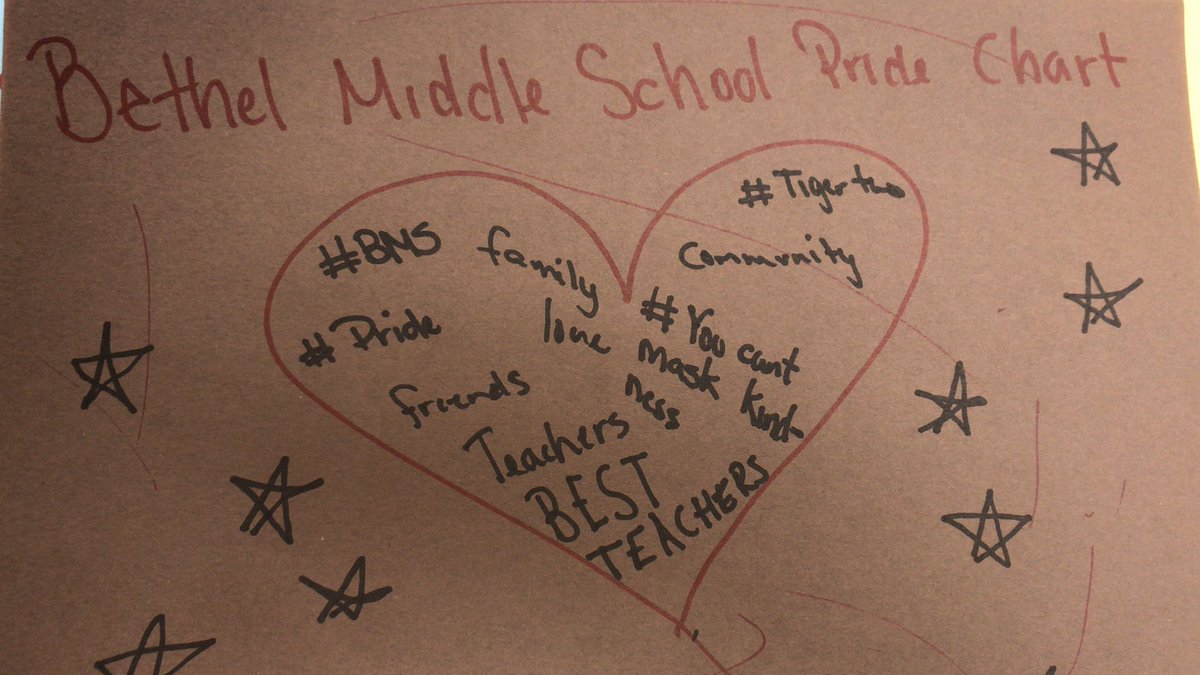 Bethel Middle School Pride Chart
#Tiger
#BMS family
community
#Pride
love
#You cant
mask kind
ness
friends
Teachers
BEST
TEACHERS